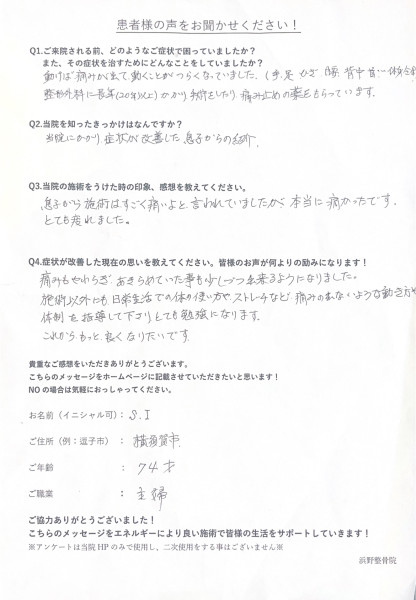 患者様の声をお聞かせください！
Q1.ご来院される前、どのようなご症状で困っていましたか？
また、その症状を治すためにどんなことをしていましたか？
動けば痛みがまして動くことがつらくなっていました。(手足 ひざ 腰 背中 首
整形外科に長年(20年以上)かかり手術をしたり痛み止めの薬をもらっています。
Q2.当院を知ったきっかけはなんですか？
当院にかかり症状が改善した息子からの紹介
Q3.当院の施術をうけた時の印象、感想を教えてください。
息子から施術はすごく痛いよと言われていましたが、本当に痛かったです。
とても疲れました。
Q4.症状が改善した現在の思いを教えてください。皆様のお声が何よりの励みになります！
痛みもやわらぎあきらめていた事も少しづつ出来るようになりました。
施術以外にも日常生活での体の使い方やストレッチなど、痛みのないような動き方や
体制を指導して下さりとても勉強になります。
これからもっと良くなりたいです
貴重なご感想をいただきありがとうございます。
こちらのメッセージをホームページに記載させていただきたいと思います！
NOの場合は気軽におっしゃってください。
お名前（イニシャル可）： S.I
ご住所（例：逗子市）： 横須賀市
ご年齢 ： 74才
ご職業 ： 主婦
ご協力ありがとうございました！
こちらのメッセージをエネルギーにより良い施術で皆様の生活をサポートしていきます！
※アンケートは当院HPのみで使用し、二次使用をする事はございません※
浜野整骨院